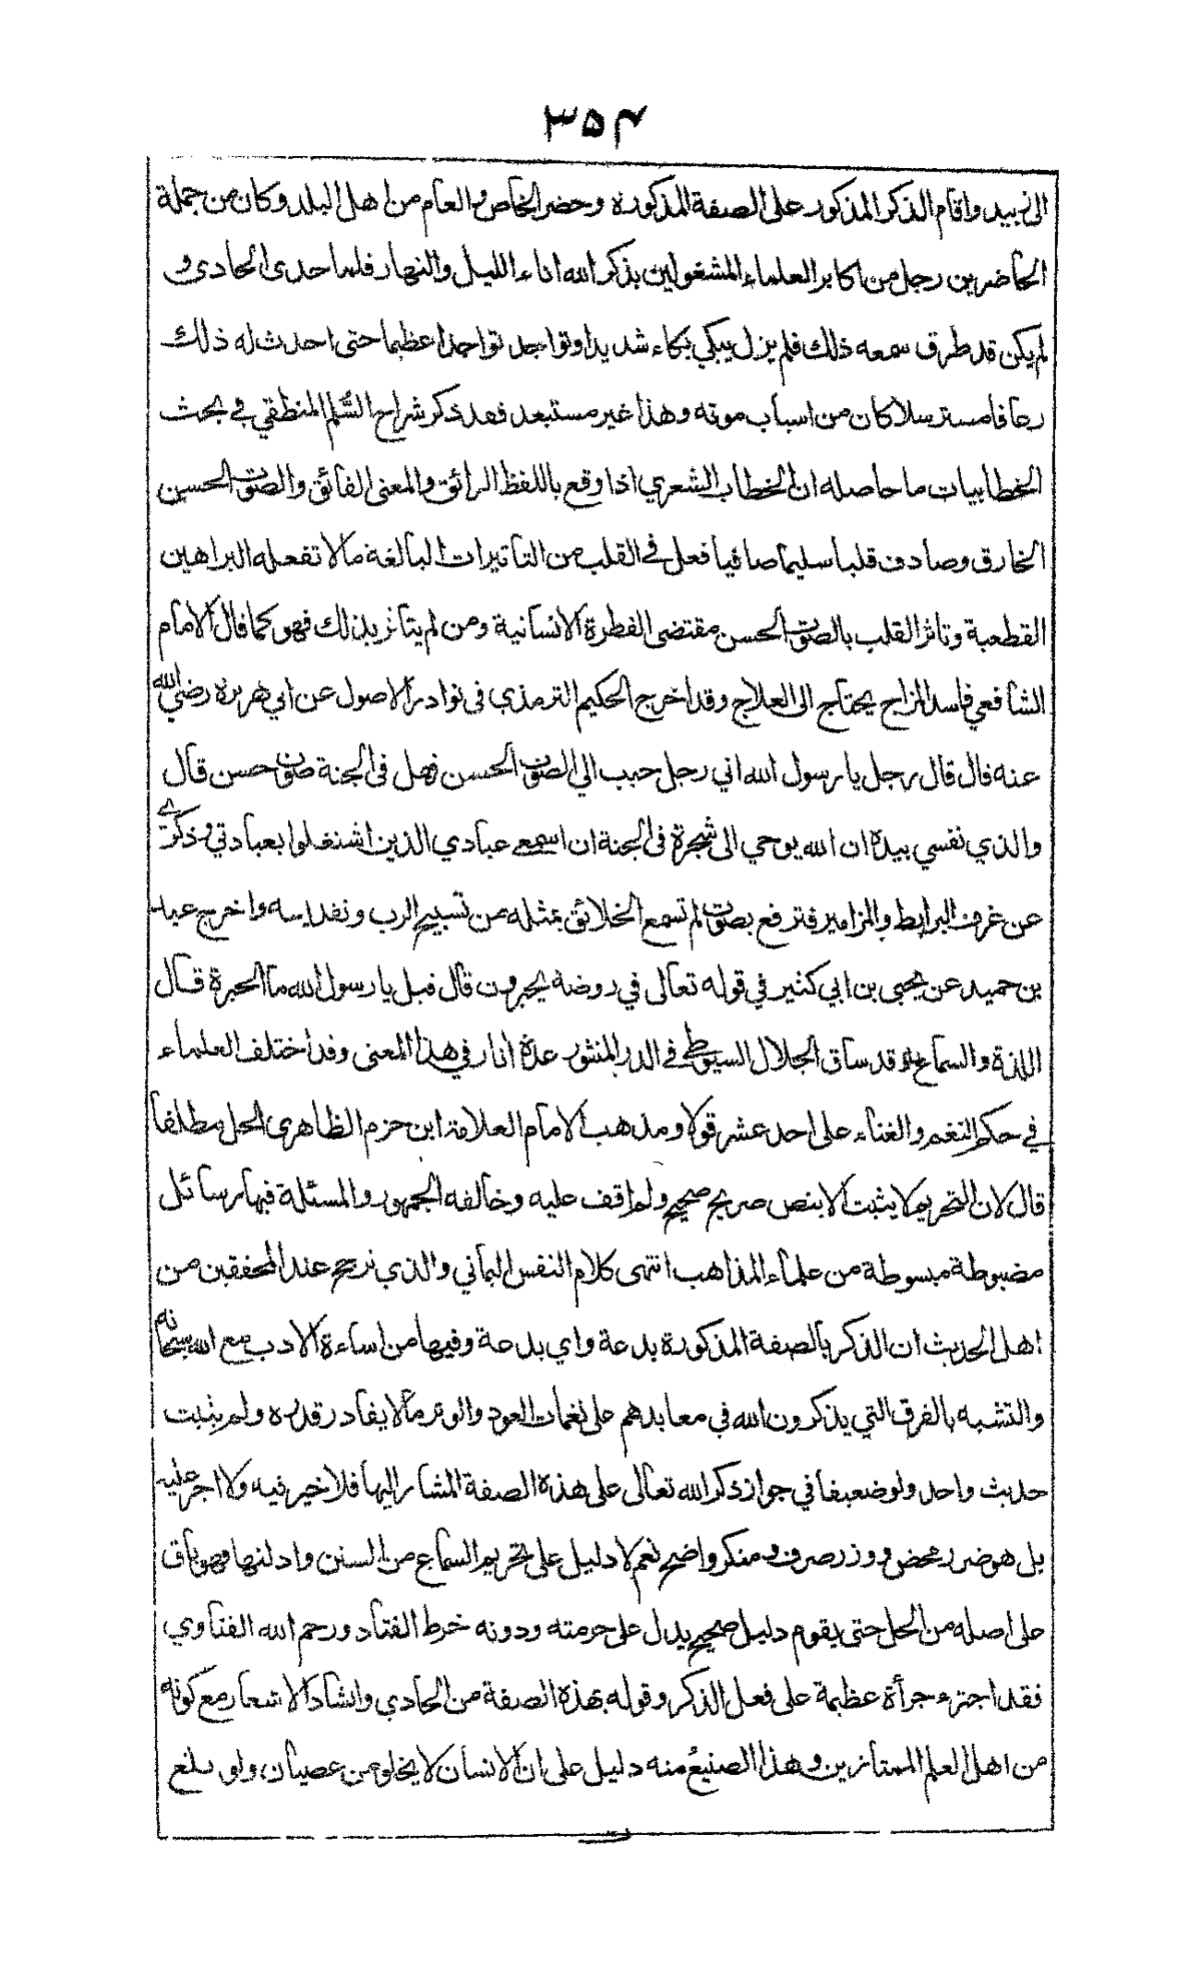 ٣٥٤
الى زبيد واقام الذكر المذكور على الصفة المذكورة وحضر الخاص والعام من اهل البلد وكان من جملة
الحاضرين رجل من اكابر العلماء المشغولين بذكر الله اناء الليل والنهار فلما حدى الحادى و
لم يكن قد طرق سمعه ذلك فلم يزل يبكي بكاء شديدا وتواجد تواجدا عظيما حتى احدث له ذلك
رعافا مسترسلا كان من اسباب موته وهذا غير مستبعد فقد ذكر شراح السُّلم المنطقي في بحث
الخطابيات ما حاصله ان الخطاب الشعري اذا وقع باللفظ الرائق والمعنى الفائق والصوت الحسن
الخارق وصادف قلبا سليما صافيا فعل في القلب من التاثيرات البالغة ما لا تفعله البراهين
القطعية وتاثر القلب بالصوت الحسن مقتضى الفطرة الانسانية ومن لم يتاثر بذلك فهو كما قال الامام
الشافعي فاسد المزاج يحتاج الى العلاج وقد اخرج الحكيم الترمذي فى نوادر الاصول عن ابي هريرة رضي الله
عنه قال قال رجل يا رسول الله اني رجل حبب الي الصوت الحسن فهل فى الجنة صوت حسن قال
والذي نفسي بيده ان الله يوحي الى شجرة فى الجنة ان اسمعي عبادي الذين اشتغلوا بعبادتي وذكرى
عن عزف البرابط والمزامير فترفع بصوت لم تسمع الخلائق بمثله من تسبيح الرب وتقديسه واخرج عبد
بن حميد عن يحيى بن ابي كثير في قوله تعالى في روضة يحبرون قال قيل يا رسول الله ما الحبرة قال
اللذة والسماع وقد ساق الجلال السيوطي في الدر المنثور عدة اثار في هذا المعنى وقد اختلف العلماء
في حكم النغم والغناء على احد عشر قولا ومذهب الامام العلامة ابن حزم الظاهرى الحل مطلقا
قال لان التحريم لا يثبت الا بنص صريح صحيح ولم اقف عليه وخالفه الجمهور والمسئلة فيها رسائل
مضبوطة مبسوطة من علماء المذاهب انتهى كلام النفس اليماني والذي ترجح عند المحققين من
اهل الحديث ان الذكر بالصفة المذكورة بدعة واي بدعة وفيها من اساءة الادب مع الله سبحانه
والتشبه بالفرق التي يذكرون الله في معابدهم على نغمات العود والوتر ما لا يقادر قدره ولم يثبت
حديث واحد ولو ضعيفا في جواز ذكر الله تعالى على هذه الصفة المشار اليها فلا خير فيه ولا اجر عليه
بل هو ضرر محض ووزر صرف ومنكر واضح نعم لا دليل على تحريم السماع من السنن وادلتها فهو باق
على اصله من الحل حتى يقوم دليل صحيح يدل على حرمته ودونه خرط القتاد ورحم الله الفتاوي
فقد اجترء جرأة عظيمة على فعل الذكر وقوله بهذه الصفة من الحادي وانشاد الاشعار مع كونه
من اهل العلم الممتازين وهذا الصنيع منه دليل على ان الانسان لا يخلو من عصيان ولو بلغ